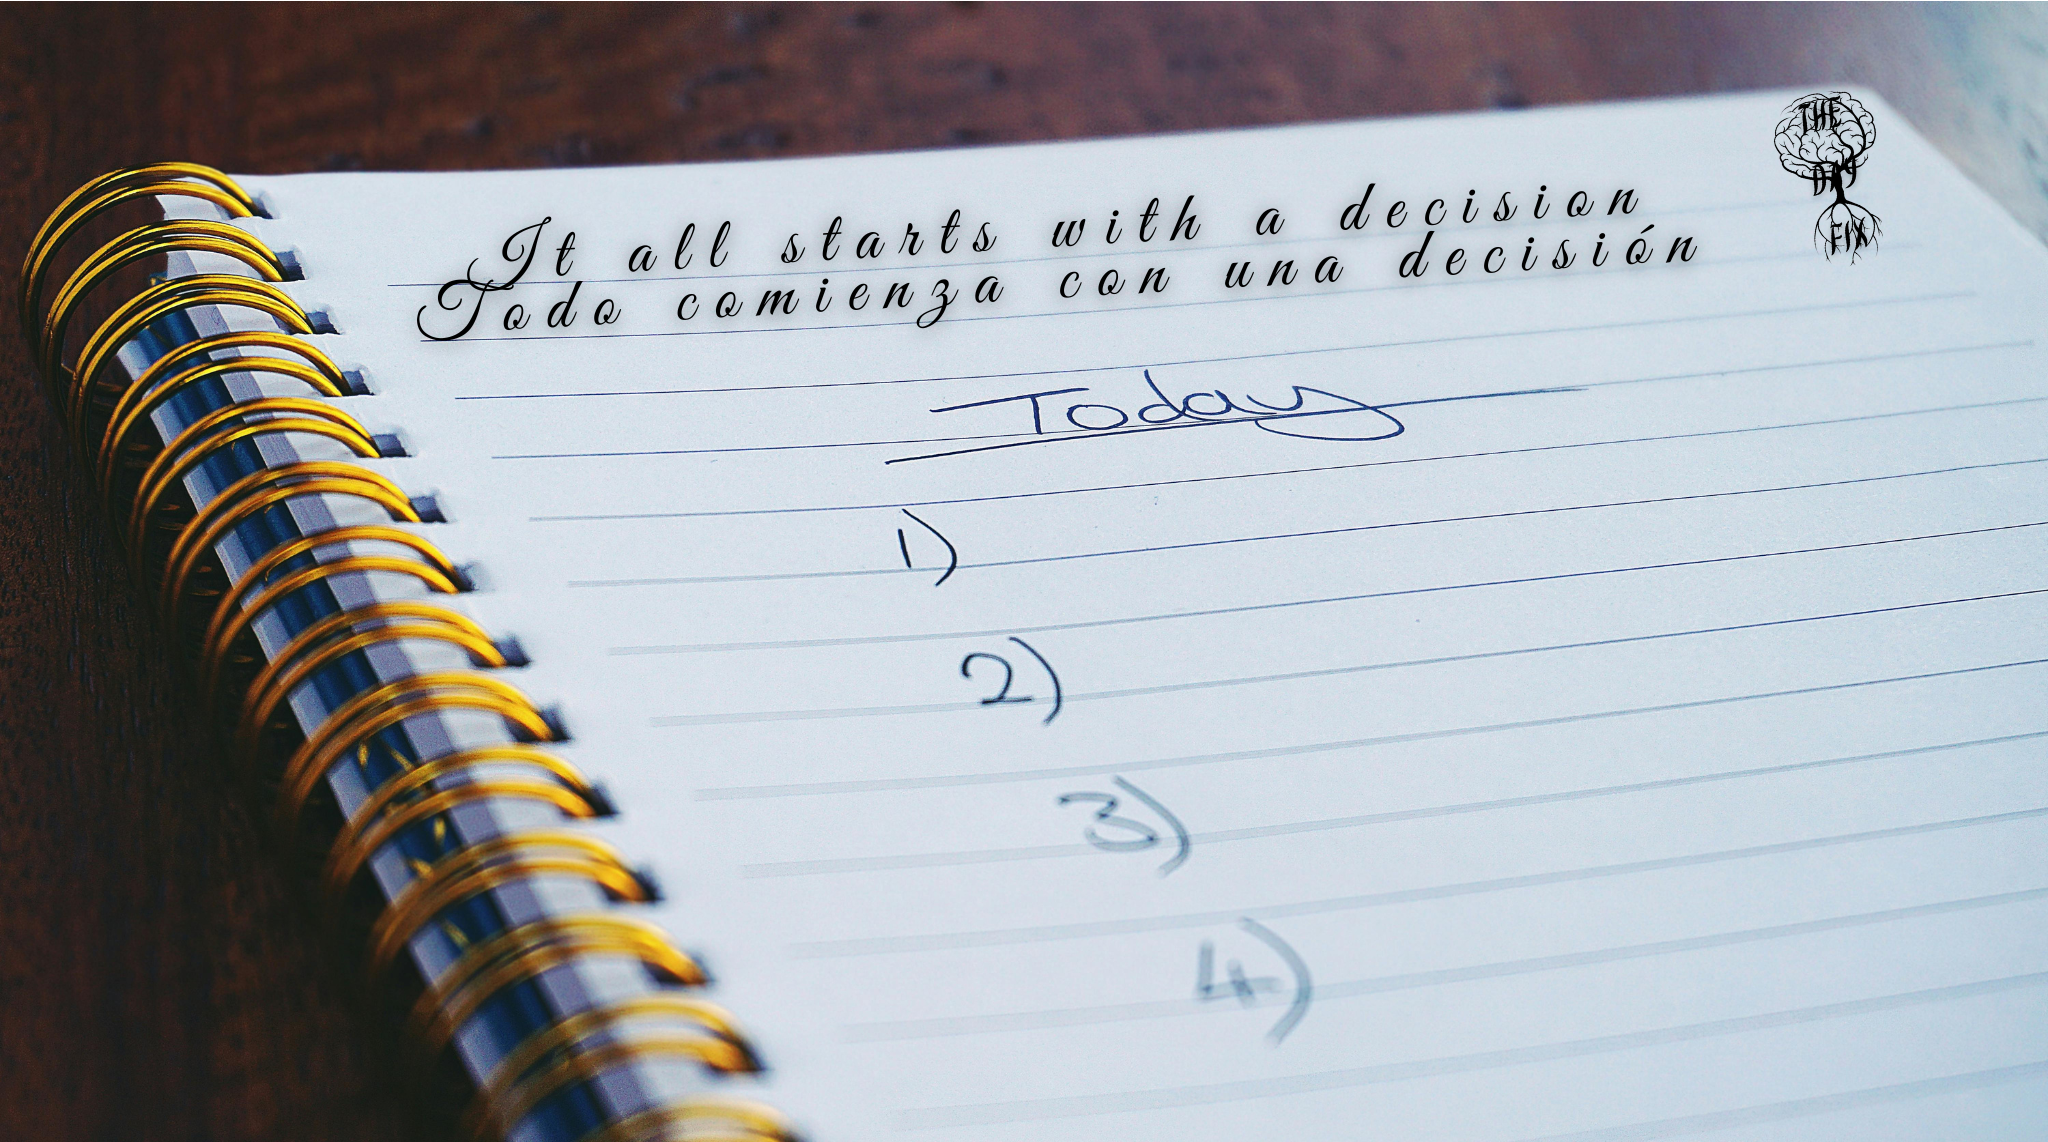 It all starts with a decision
Todo comienza con una decisión
THE
DAY
FIX
Today
1)
2)
3)
4)